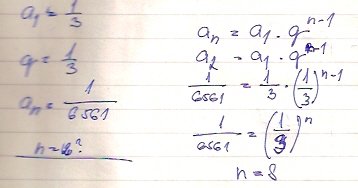 a₁ = 1/3
q = 1/3
aₙ = 1/6561
n = ?
aₙ = a₁ · qⁿ⁻¹
a₂ = a₁ · qⁿ⁻¹
1/6561 = 1/3 · (1/3)ⁿ⁻¹
1/6561 = (1/3)ⁿ
n = 8